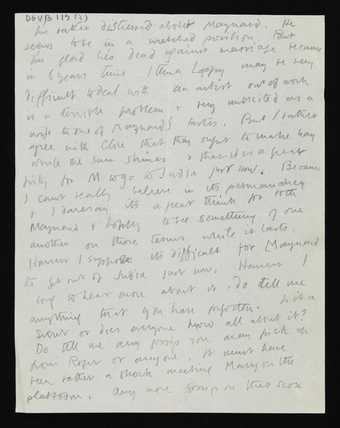 I'm rather distressed about Maynard. He
seems to be in a wretched position. But
his god lies dead against marriage because
in 6 years time I think Loppy may be very
difficult to deal with an artist out of work
is a terrible problem & very unsuited as a
wife to one of Maynard's tastes. But I rather
agree with Clive that they ought to make hay
while the sun shines & that it is a great
pity for M to go to India just now. Because
I can't really believe in its permanency
& I daresay its a great thing for both
Maynard & Loppy to see something of one
another on those terms while it lasts.
However I suppose its difficult for Maynard
to get out of India just now. However I
long to hear more about it. Do tell me
anything that you have forgotten. Is it a
secret or does everyone know all about it?
Do tell me any gossip you may pick up
from Roger or anyone. It must have
been rather a shock meeting Mary on the
platform. Any more gossip on that score